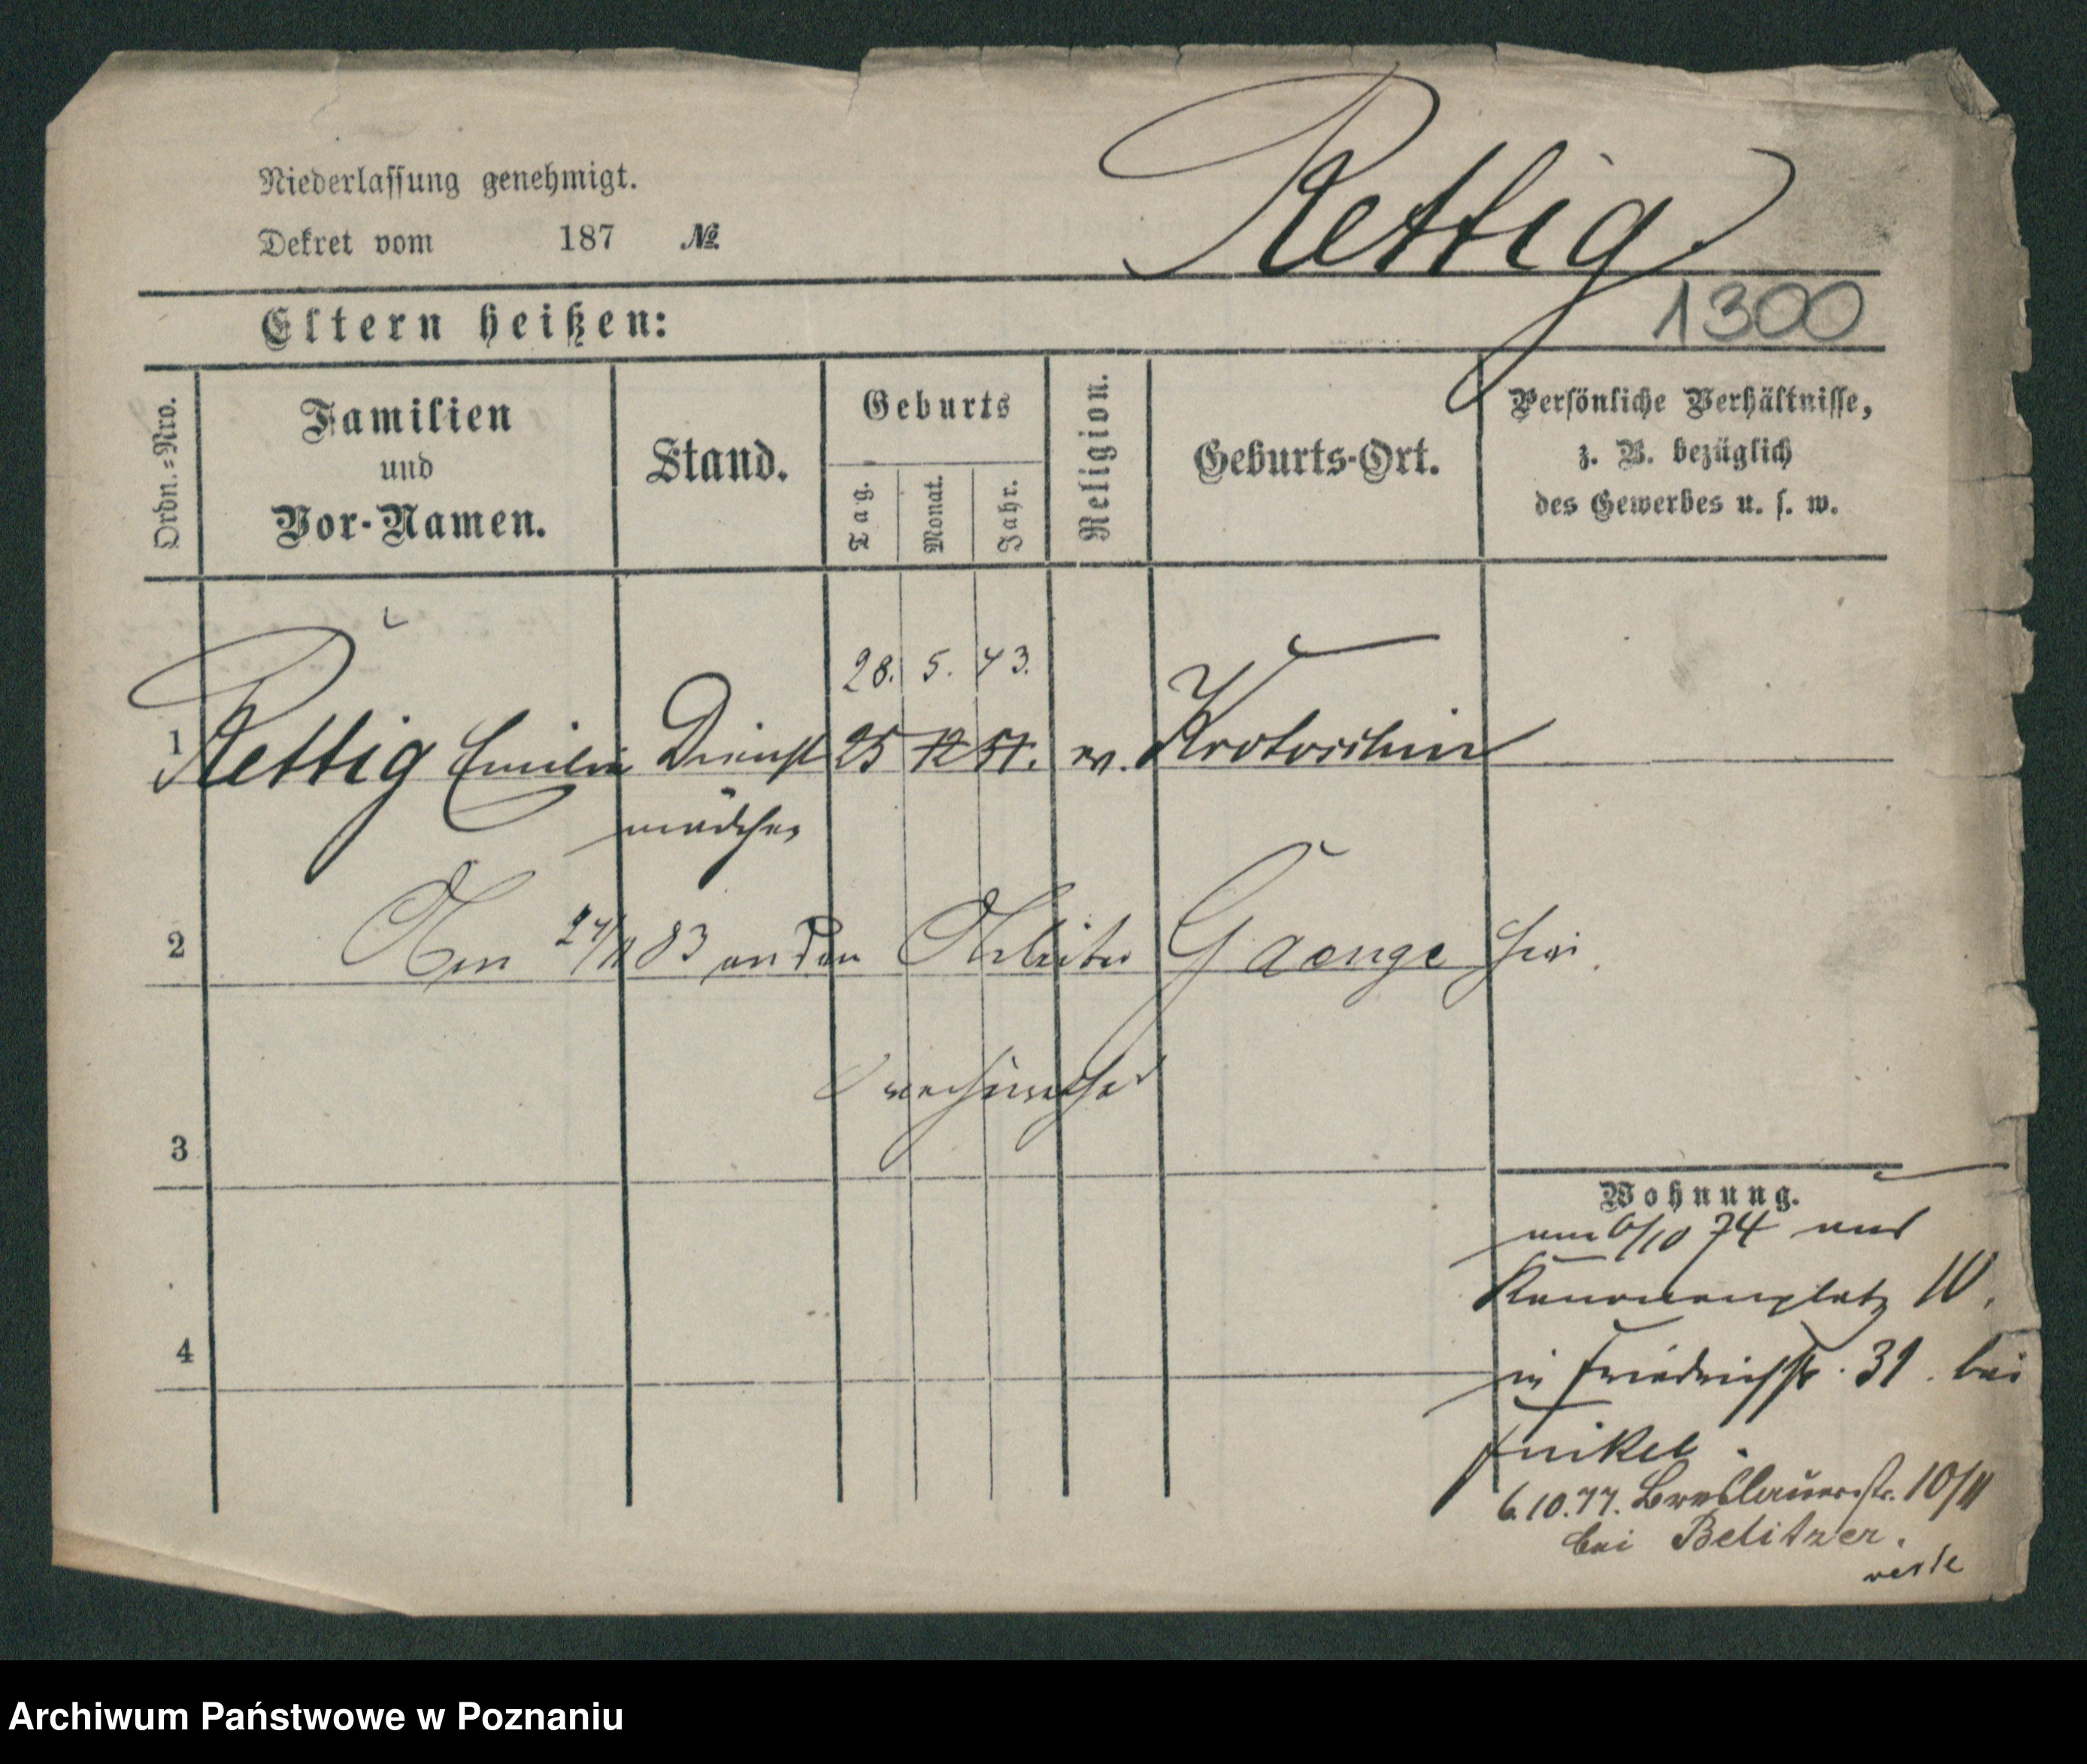 Niederlassung genehmigt.
Dekret vom 187 №
Rettig
1300
Eltern heißen:
Ordn.=Nro.
Familien
und
Vor-Namen.
Stand.
Geburts
Tag.
Monat.
Jahr.
Religion.
Geburts-Ort.
Persönliche Verhältnisse,
z. B. bezüglich
des Gewerbes u. s. w.
28. 5. 43.
1 Rettig Emilie Dienst 25 12 51. ev. Krotoschin
mädchen
2 Am 24/11 83 an den Arbeiter Gaenge hier.
verheirathet
3
4
Wohnung.
am 6/10 74 aus
Kanonenplatz 10.
in Friedrichstr. 31. bei
Funkel.
6.10.77. Breslauerstr. 10/II
bei Belitzer.
Archiwum Państwowe w Poznaniu